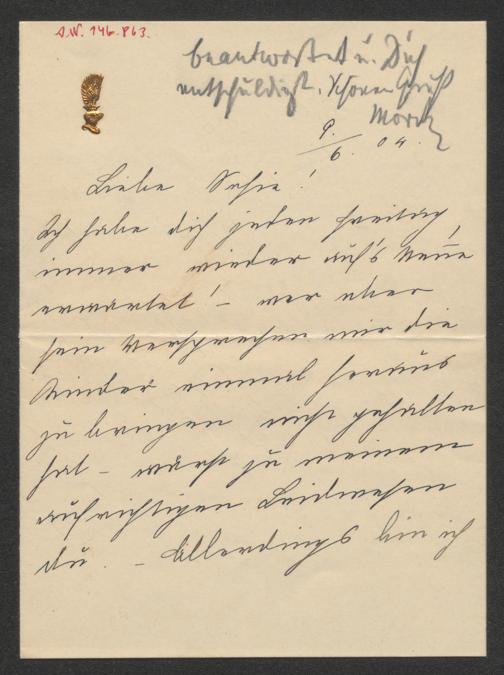 I.N. 146.863.
beantwortet u. Dich
entschuldigt. Gruß
Moriz
9./6. 04.
Liebe !
Ich habe dich jeden Freitag,
immer wieder auf's Neue
erwartet! – wer aber
sein Versprechen mir die
Kinder einmal heraus
zu bringen nicht gehalten
hat – warst zu meinem
aufrichtigen Leidwesen
du. – Allerdings bin ich